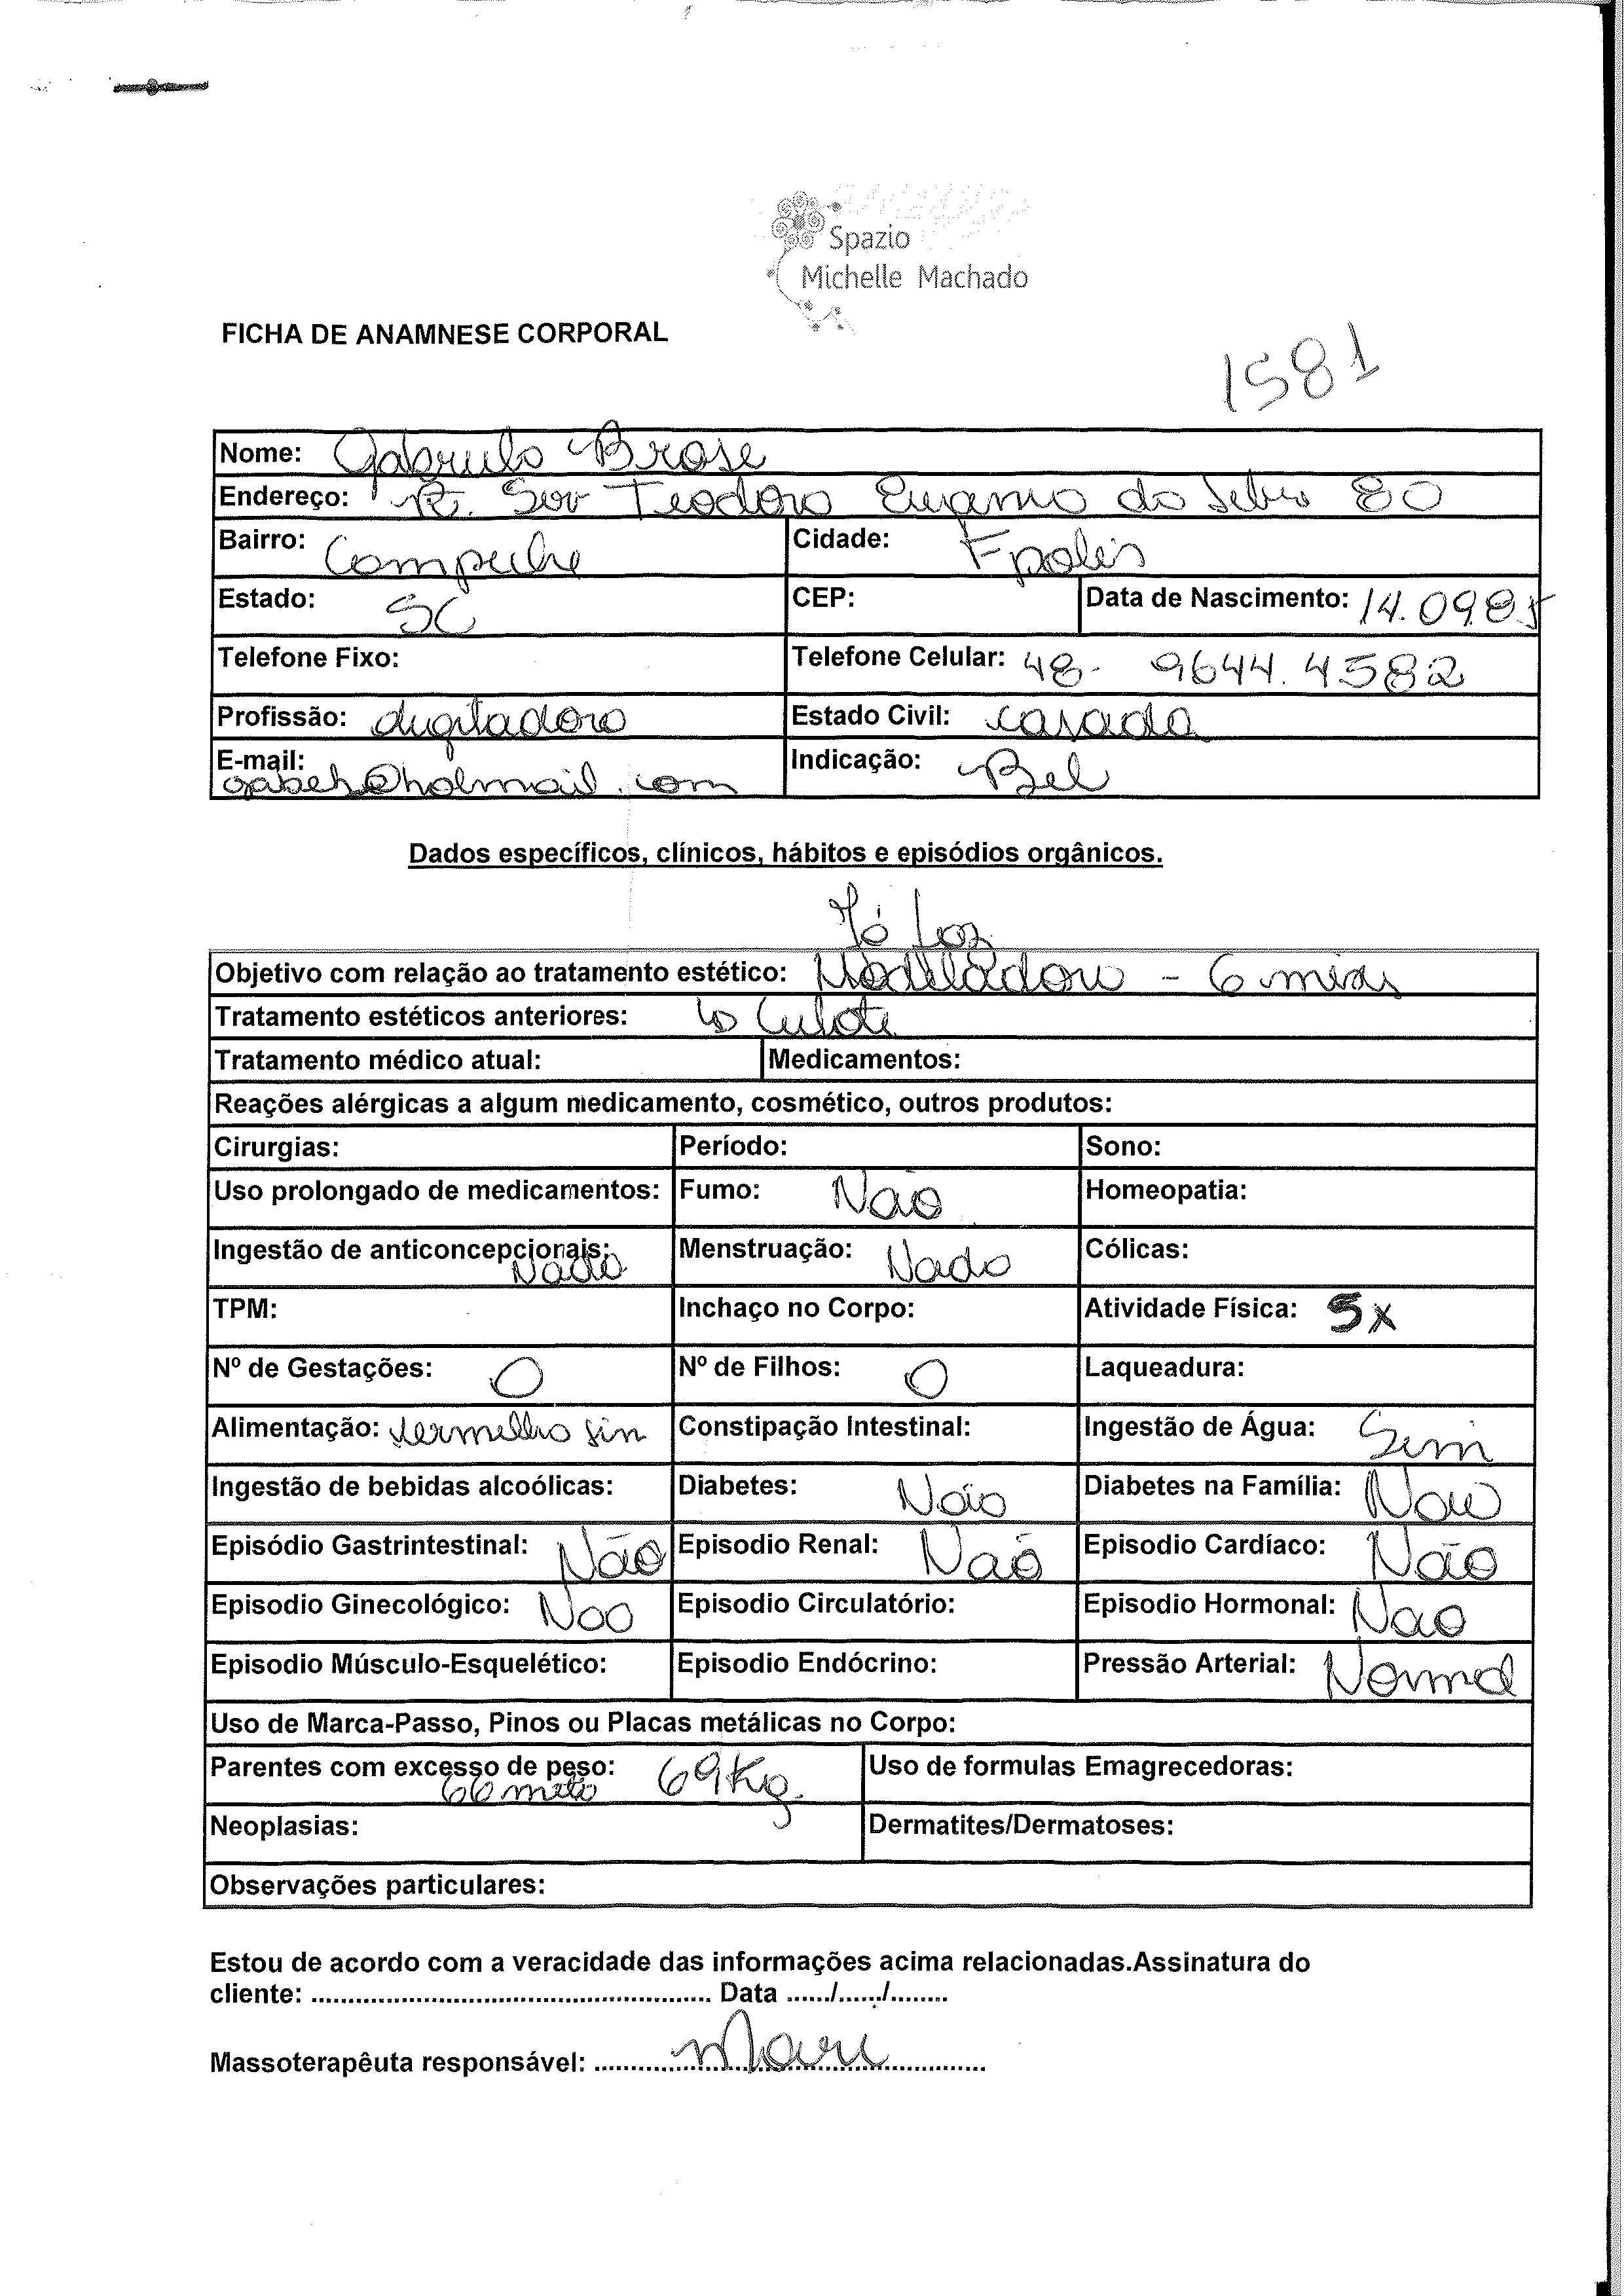 Spazio
Michelle Machado
FICHA DE ANAMNESE CORPORAL
1581
Nome: Brose
Endereço: R. Serv Teodoro do 80
Bairro: Campeche Cidade: Fpolis
Estado: SC CEP: Data de Nascimento: 14.09.85
Telefone Fixo: Telefone Celular: 48- 9644.4582
Profissão: digitadora Estado Civil: casada
E-mail: Indicação: Bel
gabeh@hotmail.com
Dados específicos, clínicos, hábitos e episódios orgânicos.
Já faz
Objetivo com relação ao tratamento estético: Modeladora - 6 meses
Tratamento estéticos anteriores: ↳ Culote
Tratamento médico atual: Medicamentos:
Reações alérgicas a algum medicamento, cosmético, outros produtos:
Cirurgias: Período: Sono:
Uso prolongado de medicamentos: Fumo: Não Homeopatia:
Ingestão de anticoncepcionais: Nada Menstruação: Nada Cólicas:
TPM: Inchaço no Corpo: Atividade Física: 5x
Nº de Gestações: 0 Nº de Filhos: 0 Laqueadura:
Alimentação: vermelha sim Constipação Intestinal: Ingestão de Água: Sim
Ingestão de bebidas alcoólicas: Diabetes: Não Diabetes na Família: Não
Episódio Gastrintestinal: Não Episodio Renal: Não Episodio Cardíaco: Não
Episodio Ginecológico: Nao Episodio Circulatório: Episodio Hormonal: Nao
Episodio Músculo-Esquelético: Episodio Endócrino: Pressão Arterial: Normal
Uso de Marca-Passo, Pinos ou Placas metálicas no Corpo:
Parentes com excesso de peso: 69Kg. Uso de formulas Emagrecedoras:
66 meta
Neoplasias: Dermatites/Dermatoses:
Observações particulares:
Estou de acordo com a veracidade das informações acima relacionadas.Assinatura do
cliente: ...................................................... Data ....../....../........
Massoterapêuta responsável: ........Mari........